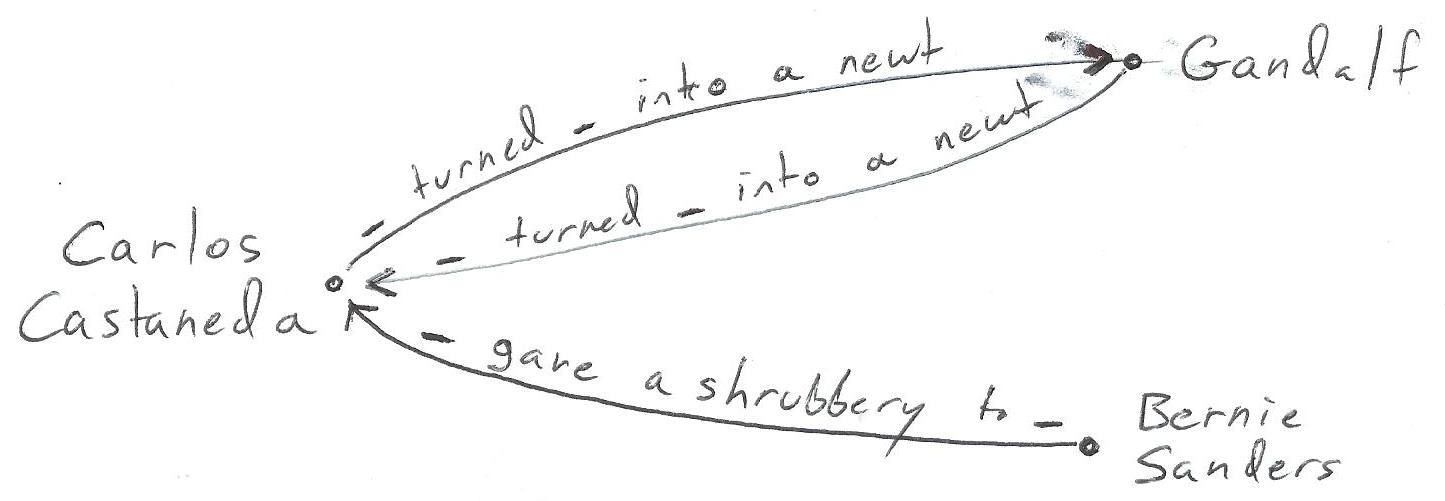 - turned - into a newt
Gandalf
- turned - into a newt
Carlos
Castaneda
- gave a shrubbery to -
Bernie
Sanders